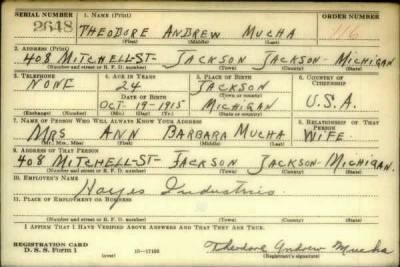 SERIAL NUMBER 1. NAME (Print) ORDER NUMBER
2648 THEODORE ANDREW MUCHA 116
(First) (Middle) (Last)
2. ADDRESS (Print)
408 MITCHELL-ST- JACKSON JACKSON- MICHIGAN
(Number and street or R. F. D. number) (Town) (County) (State)
3. TELEPHONE 4. AGE IN YEARS 5. PLACE OF BIRTH 6. COUNTRY OF CITIZENSHIP
NONE 24 JACKSON
DATE OF BIRTH (Town or county)
OCT-19-1915 MICHIGAN U.S.A.
(Exchange) (Number) (Mo.) (Day) (Yr.) (State or country)
7. NAME OF PERSON WHO WILL ALWAYS KNOW YOUR ADDRESS 8. RELATIONSHIP OF THAT PERSON
MRS ANN BARBARA MUCHA WIFE
(Mr., Mrs., Miss) (First) (Middle) (Last)
9. ADDRESS OF THAT PERSON
408 MITCHELL-ST- JACKSON JACKSON-MICHIGAN.
(Number and street or R. F. D. number) (Town) (County) (State)
10. EMPLOYER'S NAME
Hayes Industries
11. PLACE OF EMPLOYMENT OR BUSINESS
(Number and street or R. F. D. number) (Town) (County) (State)
I AFFIRM THAT I HAVE VERIFIED ABOVE ANSWERS AND THAT THEY ARE TRUE.
REGISTRATION CARD
D. S. S. Form 1 (over) Theodore Andrew Mucha
(Registrant's signature)